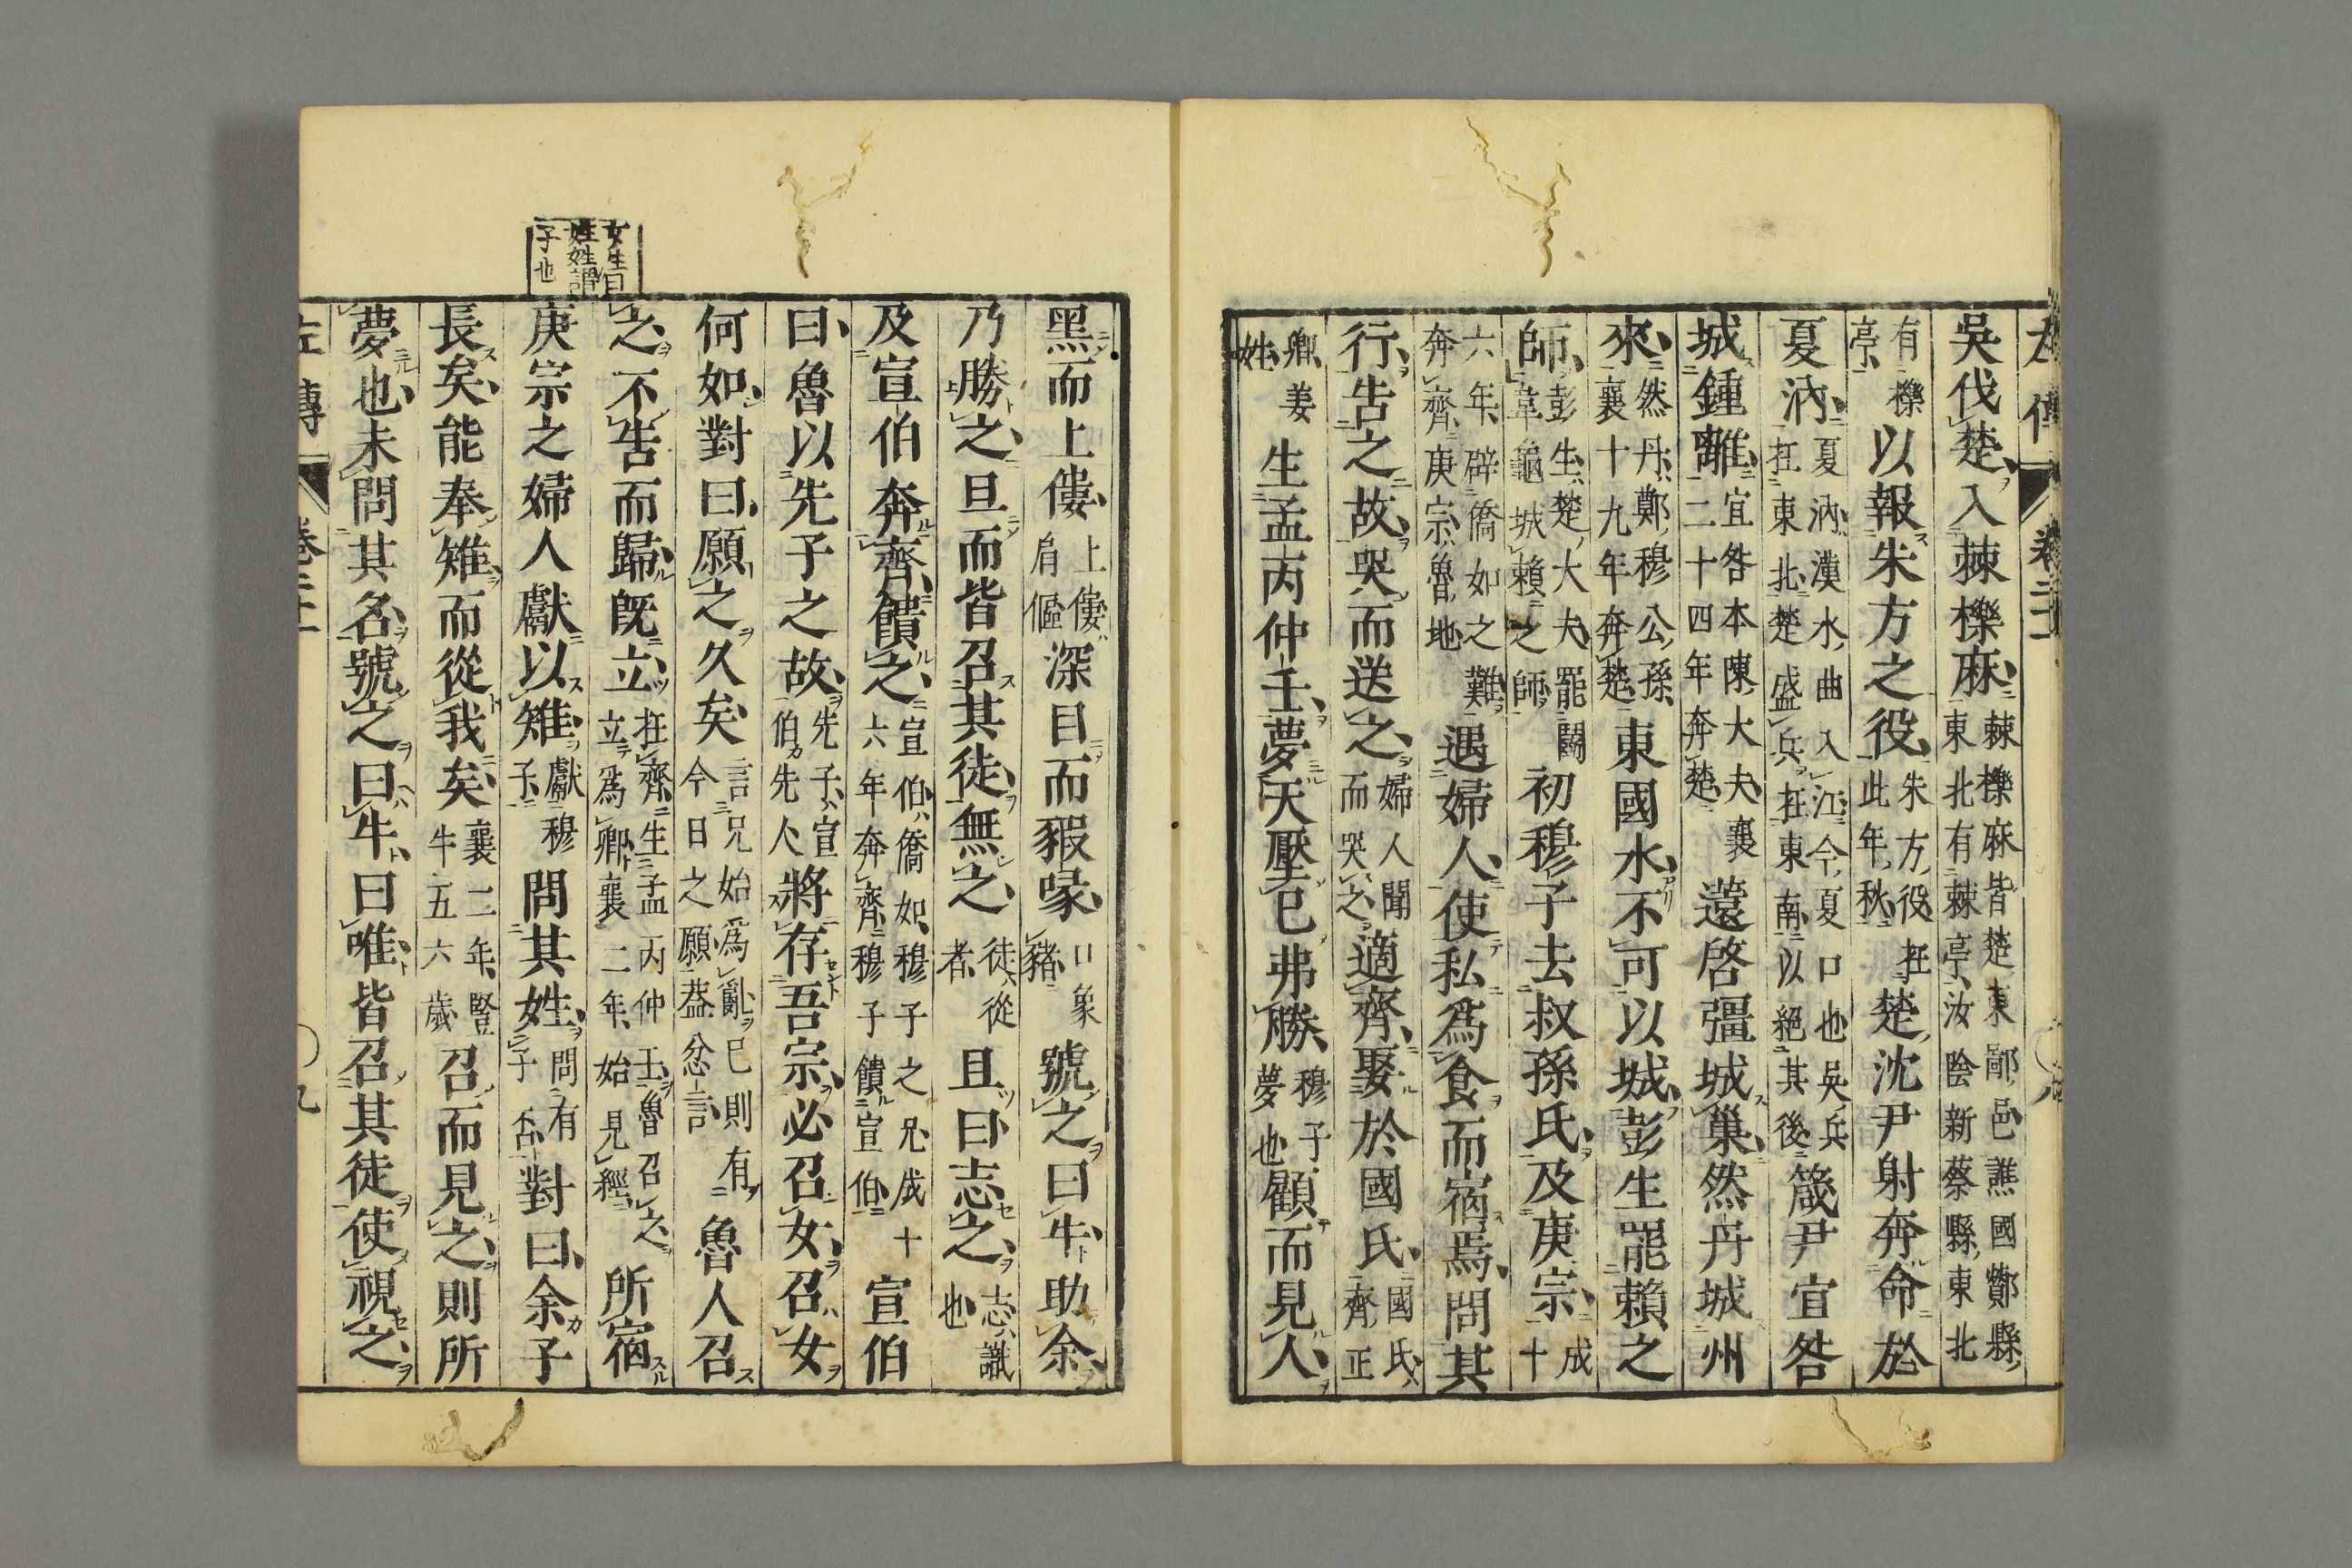 左傳 卷二十一
吳伐楚入棘櫟麻棘櫟麻皆楚東鄙邑譙國酇縣東北有棘亭汝陰新蔡縣東北
有櫟亭以報朱方之役朱方役在此年秋楚沈尹射奔命於
夏汭夏汭漢水曲入江今夏口也吳兵在東北楚盛兵在東南以絕其後箴尹宜咎
城鍾離宜咎本陳大夫襄二十四年奔楚薳啓彊城巢然丹城州
來然丹鄭穆公孫襄十九年奔楚東國水不可以城彭生罷賴之
師彭生楚大夫罷鬭韋龜城賴之師初穆子去叔孫氏及庚宗成十
六年辟僑如之難奔齊庚宗魯地遇婦人使私爲食而宿焉問其
行告之故哭而送之婦人聞而哭之適齊娶於國氏國氏齊正
卿姜姓生孟丙仲壬夢天壓已弗勝穆子夢也顧而見人
黑而上僂上僂肩傴深目而豭喙口象豬號之曰牛助余
乃勝之旦而皆召其徒無之徒從者且曰志之志識也
及宣伯奔齊饋之宣伯僑如穆子之兄成十六年奔齊穆子饋宣伯宣伯
曰魯以先子之故先子宣伯先人將存吾宗必召女召女
何如對曰願之久矣言兄始爲亂已則有今日之願蓋忿言魯人召
之不告而歸既立在齊生孟丙仲壬魯召之立爲卿襄二年始見經所宿
庚宗之婦人獻以雉獻穆子問其姓問有子否對曰余子
長矣能奉雉而從我矣襄二年豎牛五六歲召而見之則所
夢也未問其名號之曰牛曰唯皆召其徒使視之
左傳 卷二十一 〇九
女生曰
姓姓謂
子也